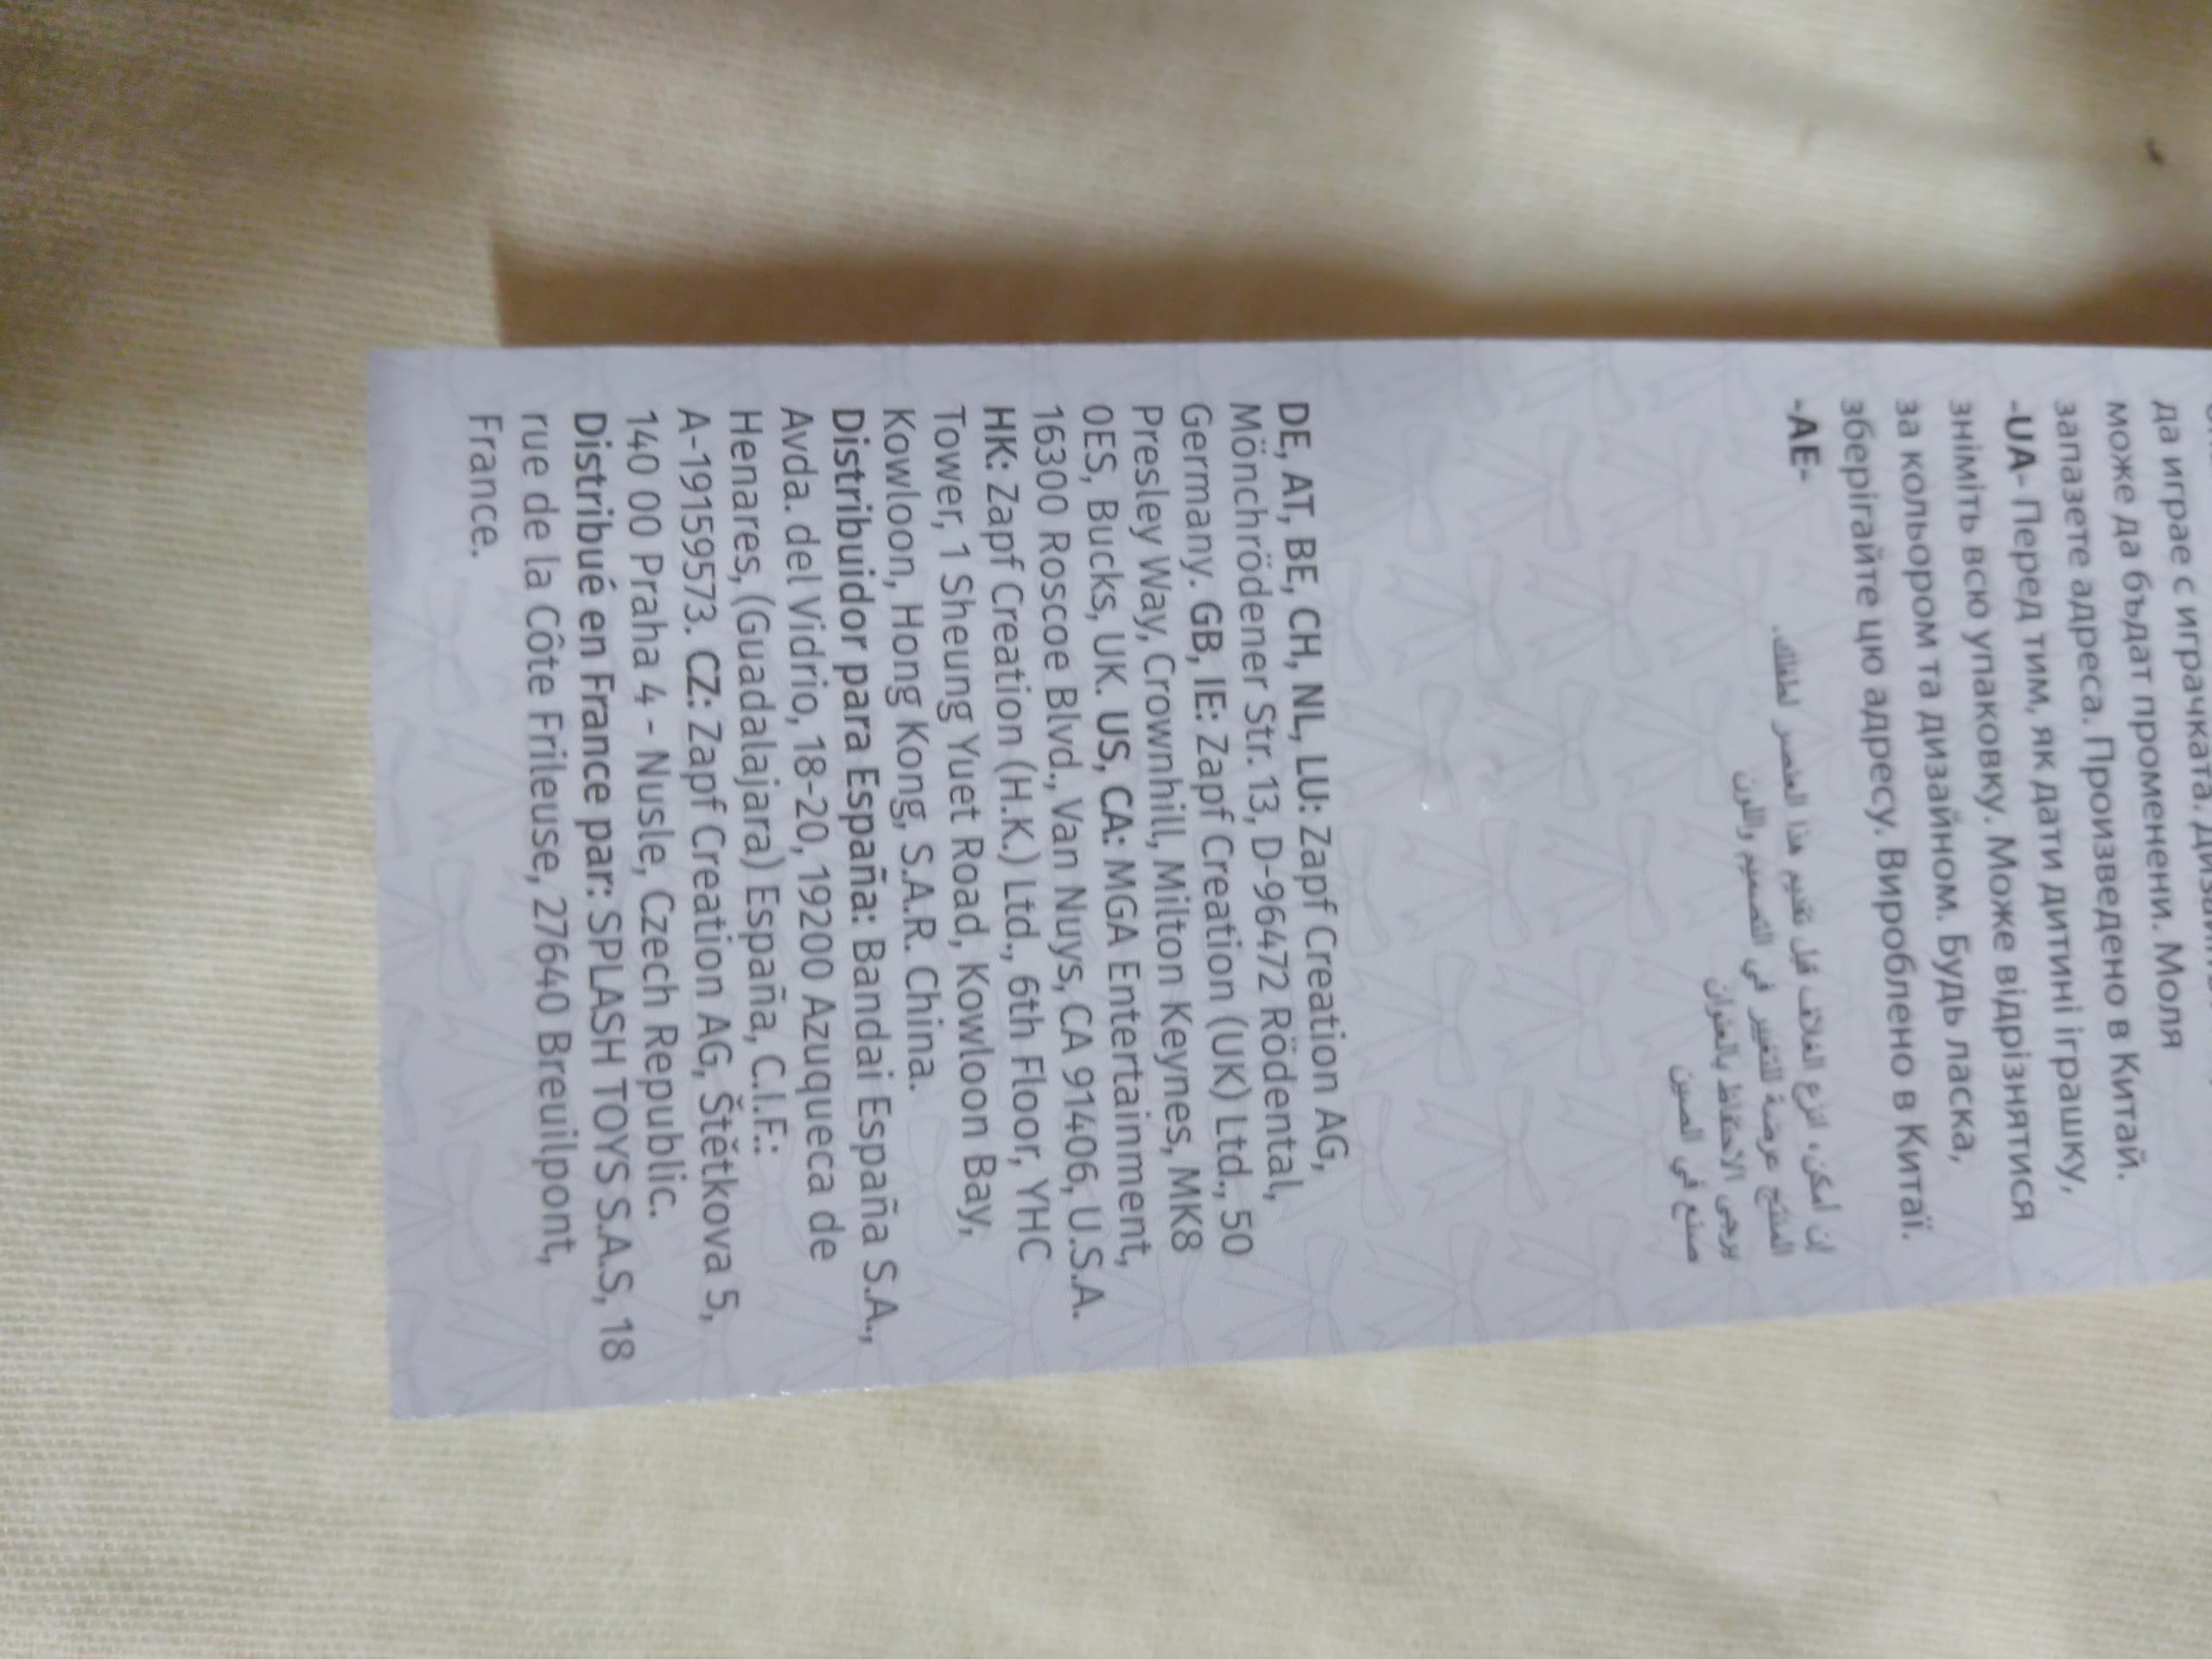 да играе с играчката.
може да бъдат променени. Моля
запазете адреса. Произведено в Китай.
-UA- Перед тим, як дати дитині іграшку,
зніміть всю упаковку. Може відрізнятися
за кольором та дизайном. Будь ласка,
зберігайте цю адресу. Вироблено в Китаї.
-AE-
إن أمكن، انزع الغلاف قبل تقديم هذا العنصر لطفلك.
المنتج عرضة للتغيير في التصميم واللون
يرجى الاحتفاظ بالعنوان
صنع في الصين
DE, AT, BE, CH, NL, LU: Zapf Creation AG,
Mönchrödener Str. 13, D-96472 Rödental,
Germany. GB, IE: Zapf Creation (UK) Ltd., 50
Presley Way, Crownhill, Milton Keynes, MK8
0ES, Bucks, UK. US, CA: MGA Entertainment,
16300 Roscoe Blvd., Van Nuys, CA 91406, U.S.A.
HK: Zapf Creation (H.K.) Ltd., 6th Floor, YHC
Tower, 1 Sheung Yuet Road, Kowloon Bay,
Kowloon, Hong Kong, S.A.R. China.
Distribuidor para España: Bandai España S.A.,
Avda. del Vidrio, 18-20, 19200 Azuqueca de
Henares, (Guadalajara) España, C.I.F.:
A-19159573. CZ: Zapf Creation AG, Štětkova 5,
140 00 Praha 4 - Nusle, Czech Republic.
Distribué en France par: SPLASH TOYS S.A.S, 18
rue de la Côte Frileuse, 27640 Breuilpont,
France.